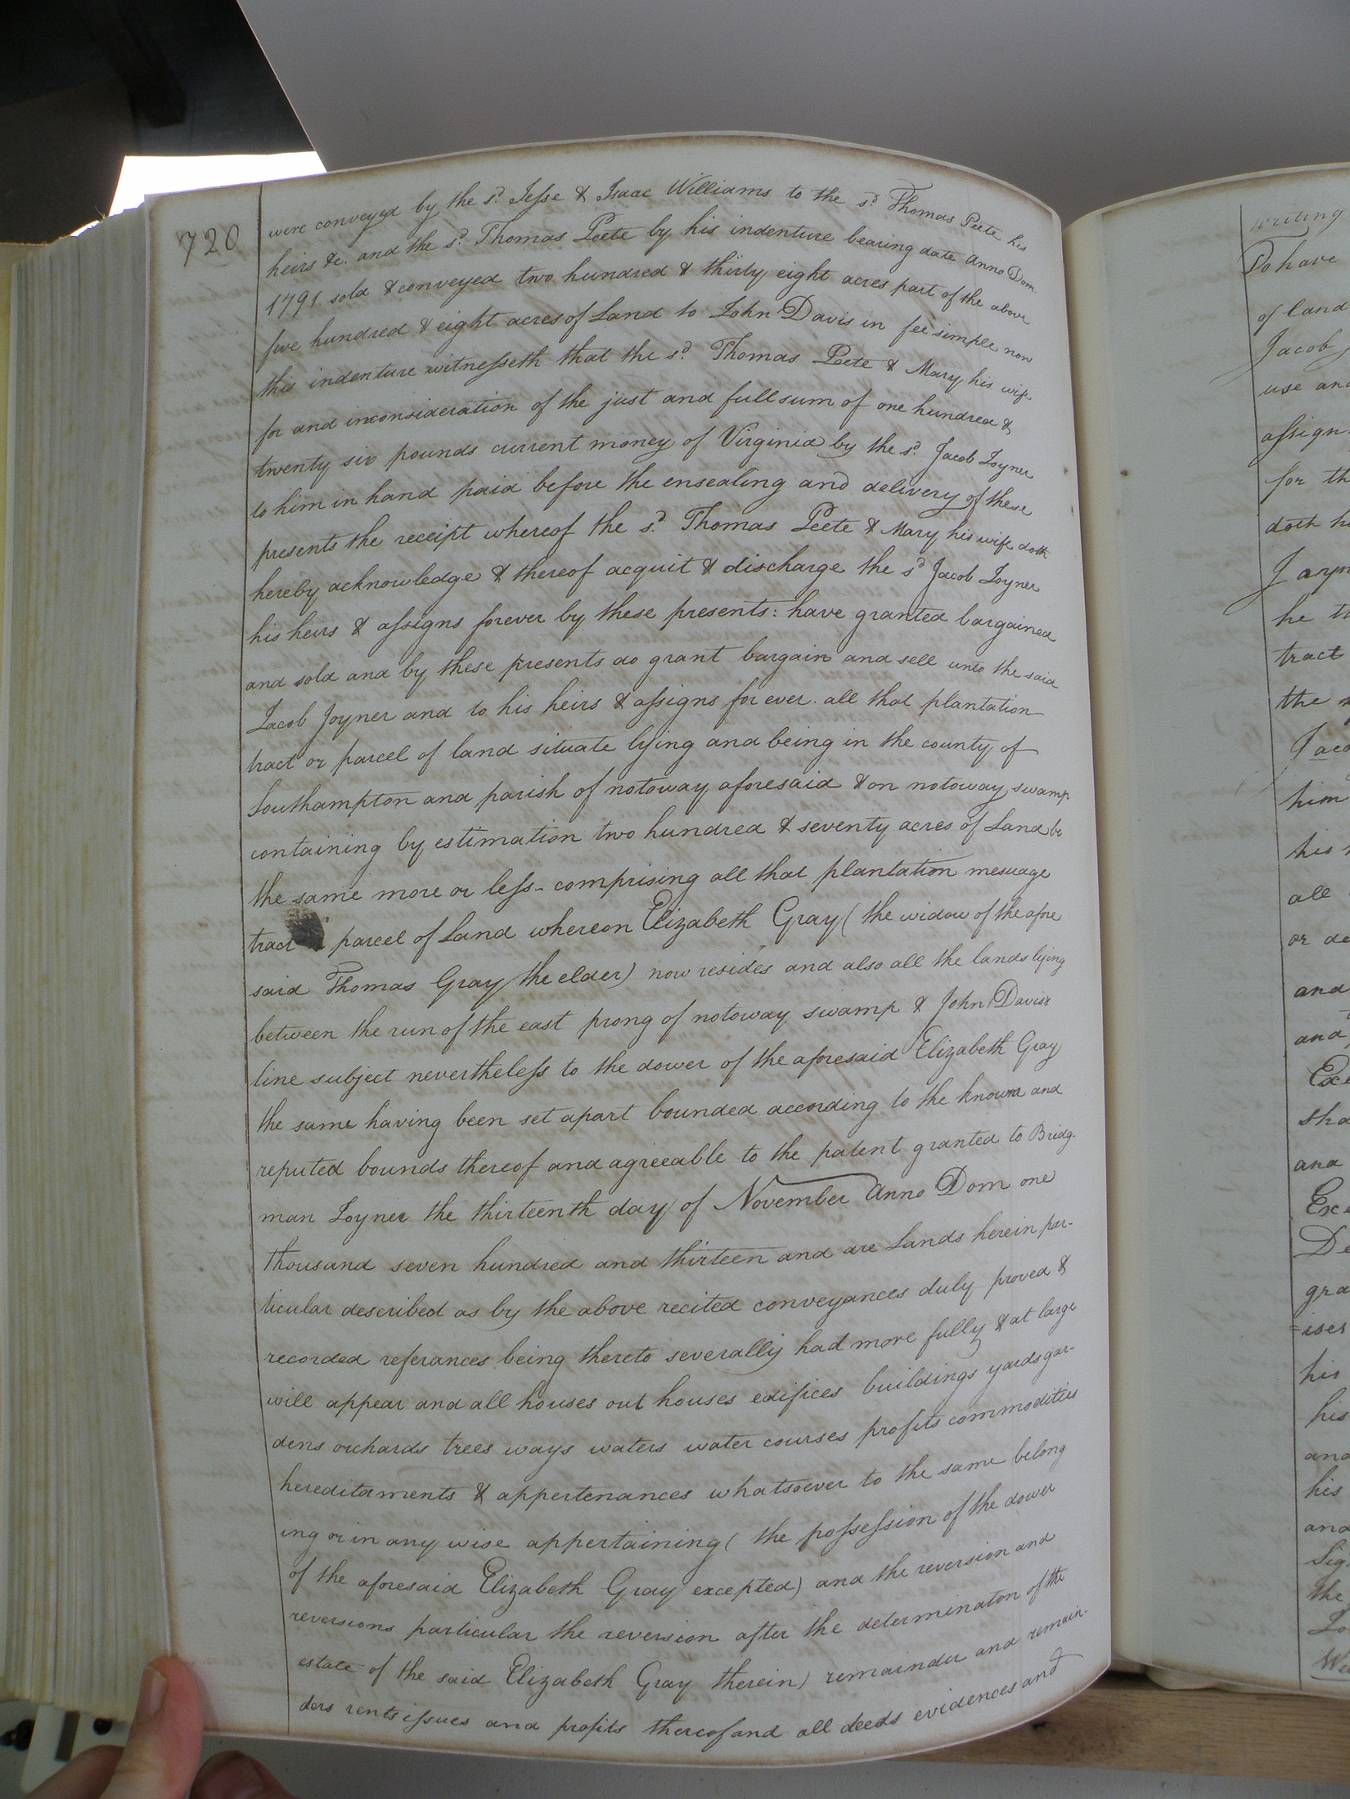 720
were conveyed by the sd. Jesse & Isaac Williams to the sd. Thomas Peete his
heirs &c. and the sd. Thomas Peete by his indenture bearing date Anno Dom.
1791 sold & conveyed two hundred & thirty eight acres part of the above
five hundred & eight acres of Land to John Davis in fee simple now
this indenture witnesseth that the sd. Thomas Peete & Mary his wife
for and inconsideration of the just and full sum of one hundred &
twenty six pounds current money of Virginia by the sd. Jacob Joyner
to him in hand paid before the ensealing and delivery of these
presents the receipt whereof the sd. Thomas Peete & Mary his wife doth
hereby acknowledge & thereof acquit & discharge the sd. Jacob Joyner
his heirs & assigns forever by these presents: have granted bargained
and sold and by these presents do grant bargain and sell unto the said
Jacob Joyner and to his heirs & assigns for ever. all that plantation
tract or parcel of land situate lying and being in the county of
Southampton and parish of notoway aforesaid & on notoway swamp
containing by estimation two hundred & seventy acres of Land be
the same more or less - comprising all that plantation mesuage
tract parcel of Land whereon Elizabeth Gray (the widow of the afore
said Thomas Gray the elder) now resides and also all the lands lying
between the run of the east prong of notoway swamp & John Davis's
line subject nevertheless to the dower of the aforesaid Elizabeth Gray
the same having been set apart bounded according to the known and
reputed bounds thereof and agreeable to the patent granted to Bridg-
man Joyner the thirteenth day of November Anno Dom one
thousand seven hundred and thirteen and are Lands herein par-
ticular described as by the above recited conveyances duly proved &
recorded referances being thereto severally had more fully & at large
will appear and all houses out houses edifices buildings yards gar-
dens orchards trees ways waters water courses profits commodities
hereditaments & appertenances whatsoever to the same belong
ing or in any wise appertaining (the possession of the dower
of the aforesaid Elizabeth Gray excepted) and the reversion and
reversions particular the reversion after the determinaton of the
estate of the said Elizabeth Gray therein) remainder and remain-
ders rents issues and profits thereof and all deeds evidences and
writing
To have
of land
Jacob
use and
assign
for th
doth h
he th
tract
the
him
his
all
or de
and
and
Exe
sha
and
Exe
gra
his
his
and
his
and
Sig
the